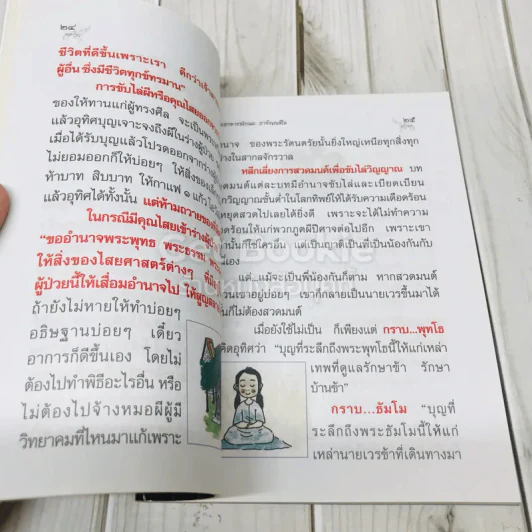 ๒๔
ชีวิตที่ดีขึ้นเพราะเรา ดีกว่าเจ้า
ผู้อื่น ซึ่งมีชีวิตทุกข์ทรมาน"
การขับไล่ผีหรือคุณไสยออก
ของให้ทานแก่ผู้ทรงศีล จะเป็นพระ
แล้วอุทิศบุญเจาะจงถึงผีในร่างผู้ป่วย
เมื่อได้รับบุญแล้วโปรดออกจากร่าง
ไม่ยอมออกก็ให้บ่อยๆ ให้สิ่งของ
ห้าบาท สิบบาท ให้กาแฟ ๑ แก้ว
แล้วอุทิศได้ทั้งนั้น แต่ห้ามถวายของ
ในกรณีมีคุณไสยเข้าร่างผู้ป่วย
"ขออำนาจพระพุทธ พระธรรม
ให้สิ่งของไสยศาสตร์ต่างๆ ที่
ผู้ป่วยนี้ให้เสื่อมอำนาจไป ให้สูญ
ถ้ายังไม่หายให้ทำบ่อยๆ
อธิษฐานบ่อยๆ เดี๋ยว
อาการก็ดีขึ้นเอง โดยไม่
ต้องไปทำพิธีอะไรอื่น หรือ
ไม่ต้องไปจ้างหมอผีผู้มี
วิทยาคมที่ไหนมาแก้เพราะ
๒๕
นาจ ของพระรัตนตรัยนั้นยิ่งใหญ่เหนือทุกสิ่งทุก
างในสากลจักรวาล
หลีกเลี่ยงการสวดมนต์เพื่อขับไล่วิญญาณ บท
วดมนต์แต่ละบทมีอำนาจขับไล่และเบียดเบียน
วิญญาณชั้นต่ำในโลกทิพย์ให้ได้รับความเดือดร้อน
หยุดสวดไปเลยได้ยิ่งดี เพราะจะได้ไม่ทำความ
ดร้อนให้แก่พวกภูตผีปีศาจต่อไปอีก เพราะเขา
นั้นก็ไม่ใช่ใครอื่น แต่เป็นญาติเป็นพี่เป็นน้องกันกับ
นเอง
แต่..แม้จะเป็นพี่น้องกันก็ตาม หากสวดมนต์
วนเขาอยู่บ่อยๆ เขาก็กลายเป็นนายเวรขึ้นมาได้
นก็ไม่ต้องสวดมนต์
เมื่อยังใช้ไม่เป็น ก็เพียงแต่ กราบ...พุทโธ
คิดอุทิศว่า "บุญที่ระลึกถึงพระพุทโธนี้ให้แก่เหล่า
เทพที่ดูแลรักษาข้า รักษา
บ้านข้า"
กราบ...ธัมโม "บุญที่
ระลึกถึงพระธัมโมนี้ให้แก่
เหล่านายเวรข้าที่เดินทางมา